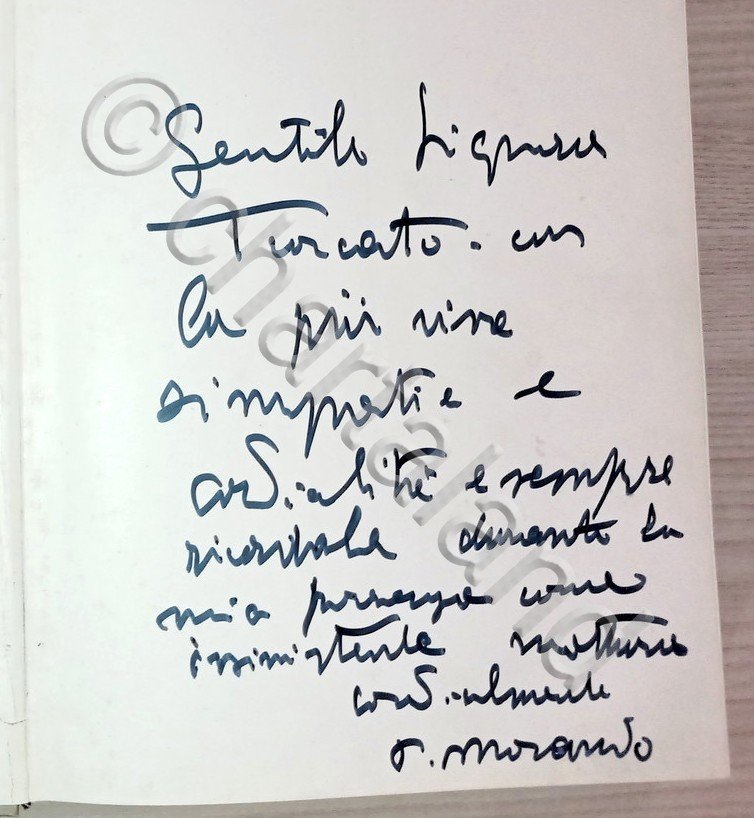 Gentile Signora
Torcato. con
la più viva
simpatia e
cordialità e sempre
ricordata durante la
mia presenza come
notturna
cordialmente
Morando
© chartaland